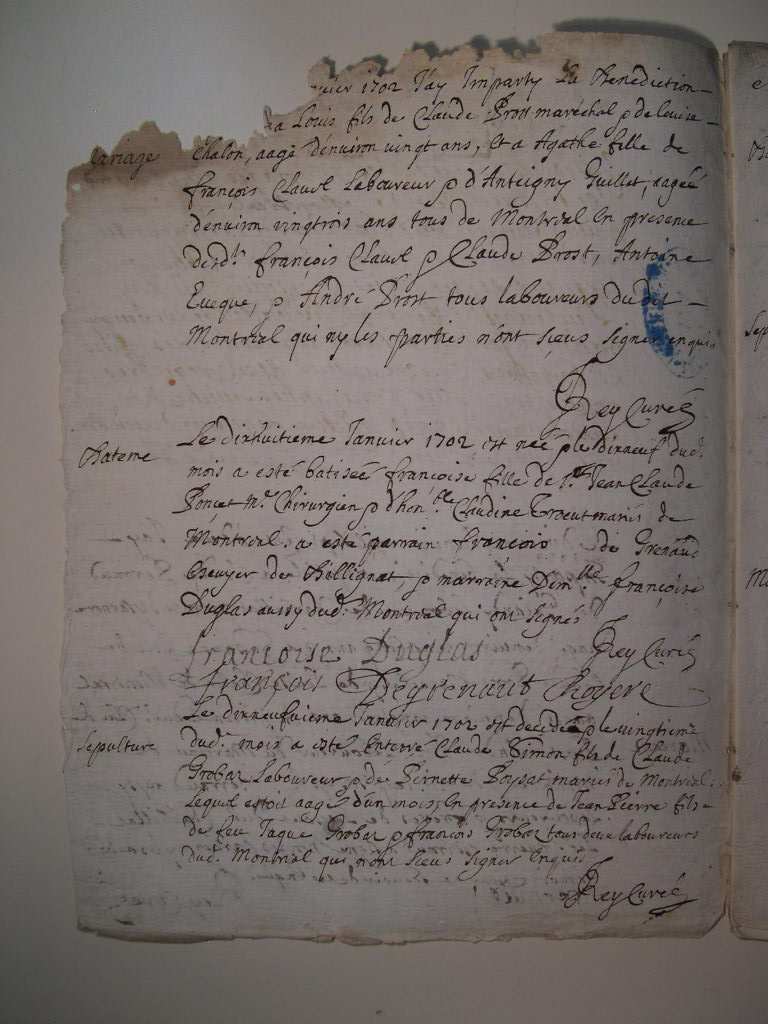 vier 1702 J'ay Imparty La Benediction
a Louis fils de Claude Prost maréchal p de louise
Mariage
Chalon, aagé d'enuiron vingt ans, Et a Agathe fille de
françois Clauel Laboureur p d'Anteigny Guillet, aageé
d'énuiron vingtrois ans tous de Montreal En presence
desd.ts françois Clauel p Claude Prost, Antoine
Eueque, p André Prost tous laboureurs du dit
Montreal qui ny les parties n'ont sçeus signer enquis
Rey Curé
Bateme
Le dixhuitieme Januier 1702 est neé p le dixneuf.e dud.
mois a esté batiseé françoise fille de s.r Jean Claude
Poncet m.e Chirurgien p d'hon.ble Claudine mariés de
Montreal. a esté parrain françois de Grenaud
Escuyer de Bellignat p marraine Dem.lle françoise
Duglas aussy dud. Montreal qui ont signés
francoise Duglas
Rey Curé
françois Degrenaud
Le dixneufuieme Januier 1702 est decedé p le vingtieme
Sepulture
dud. mois a esté Enterré Claude Simon fils de Claude
Grobaz Laboureur p de Pernette Poysat mariés de Montreal.
Lequel estoit aagé d'un mois, En presence de Jean Pierre fils
de feu Jaque Grobaz p françois Grobaz tous deux laboureurs
dud. Montreal qui n'ont sçeus signer Enquis
Rey Curé